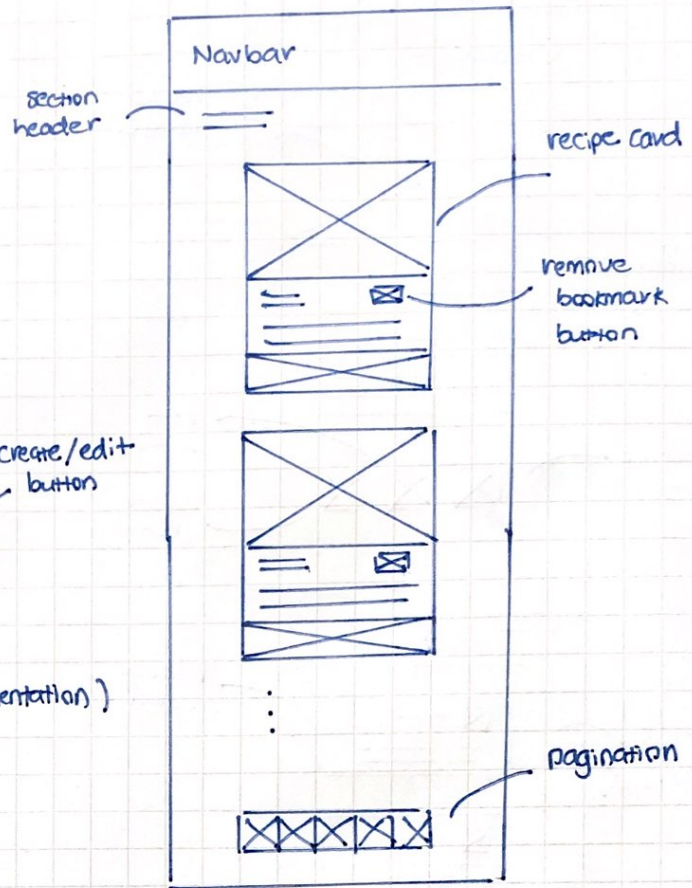 Navbar
section
header
recipe card
remove
bookmark
button
create/edit
button
entation)
pagination